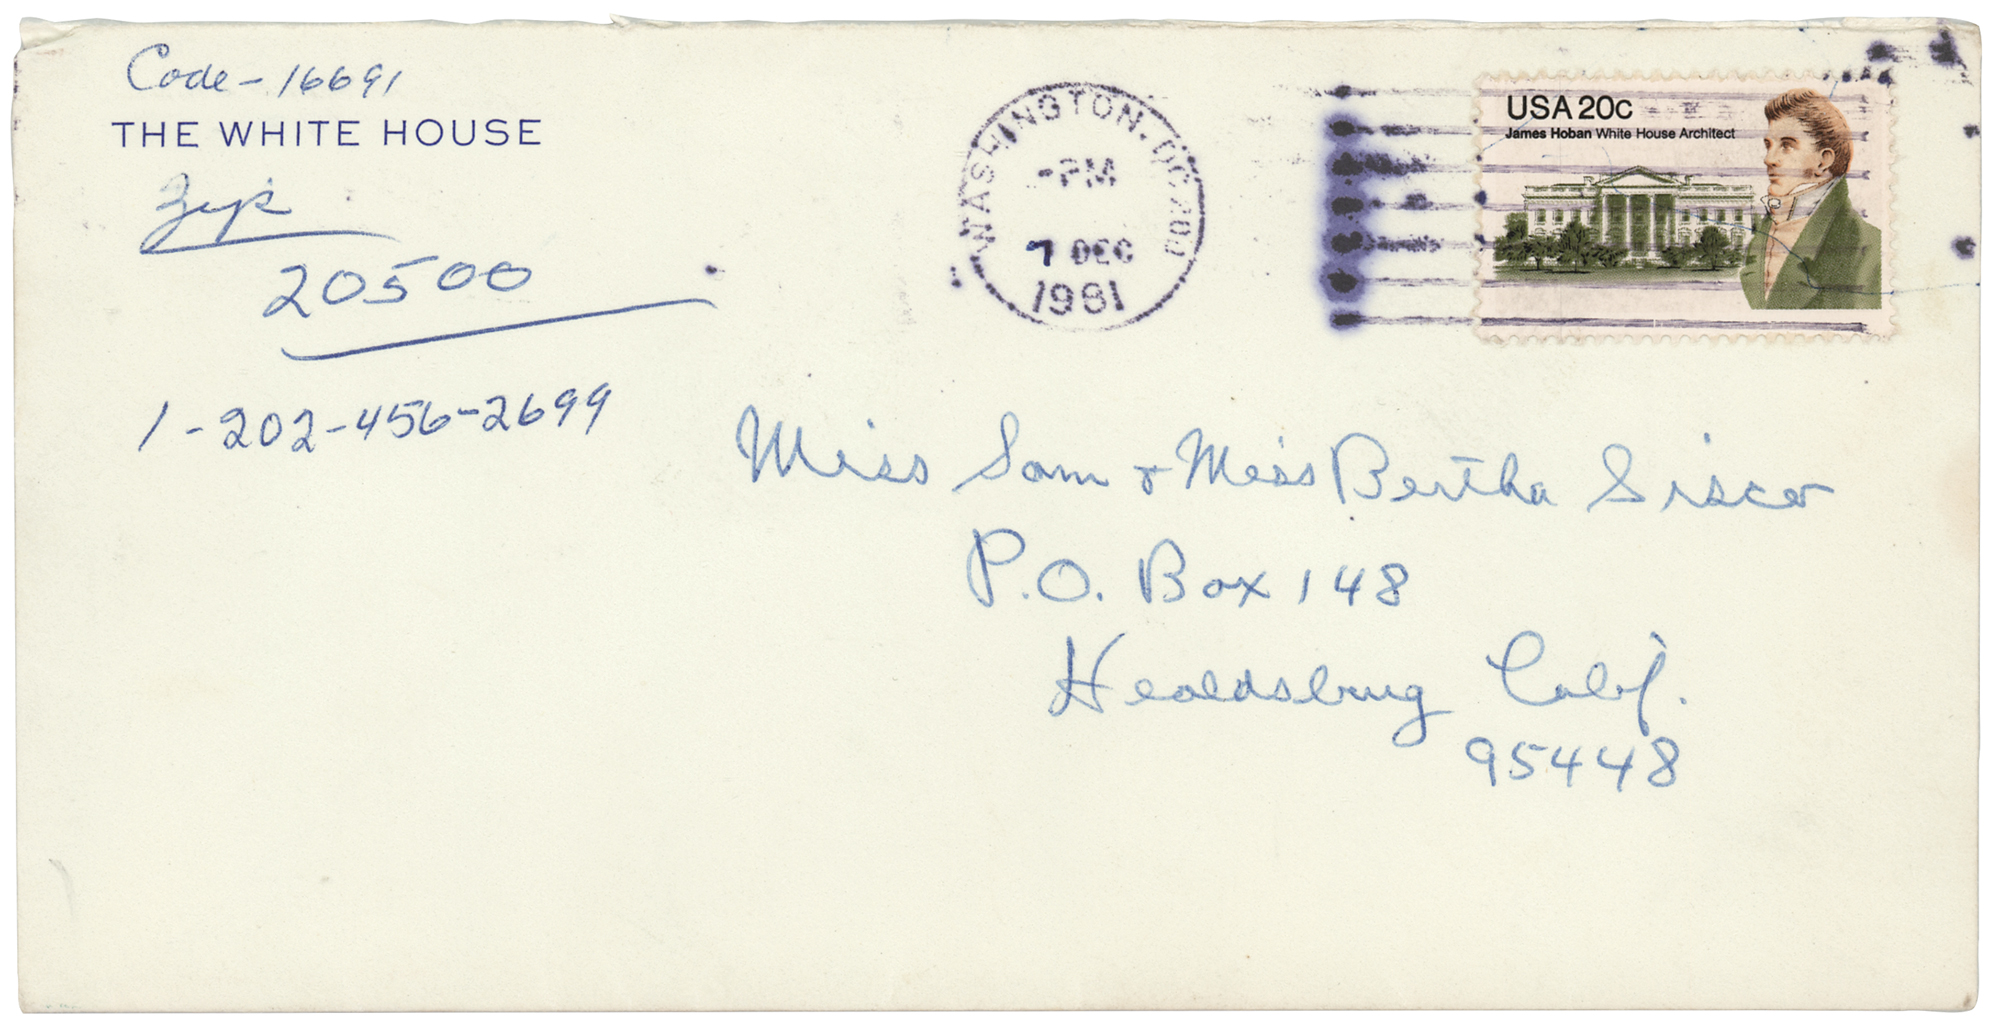 Code - 16691
THE WHITE HOUSE
Zip
20500
1-202-456-2699
WASHINGTON, DC 200
-PM
7 DEC
1981
USA 20c
James Hoban White House Architect
Miss Sam & Miss Bertha Sisco
P.O. Box 148
Healdsburg Calif.
95448